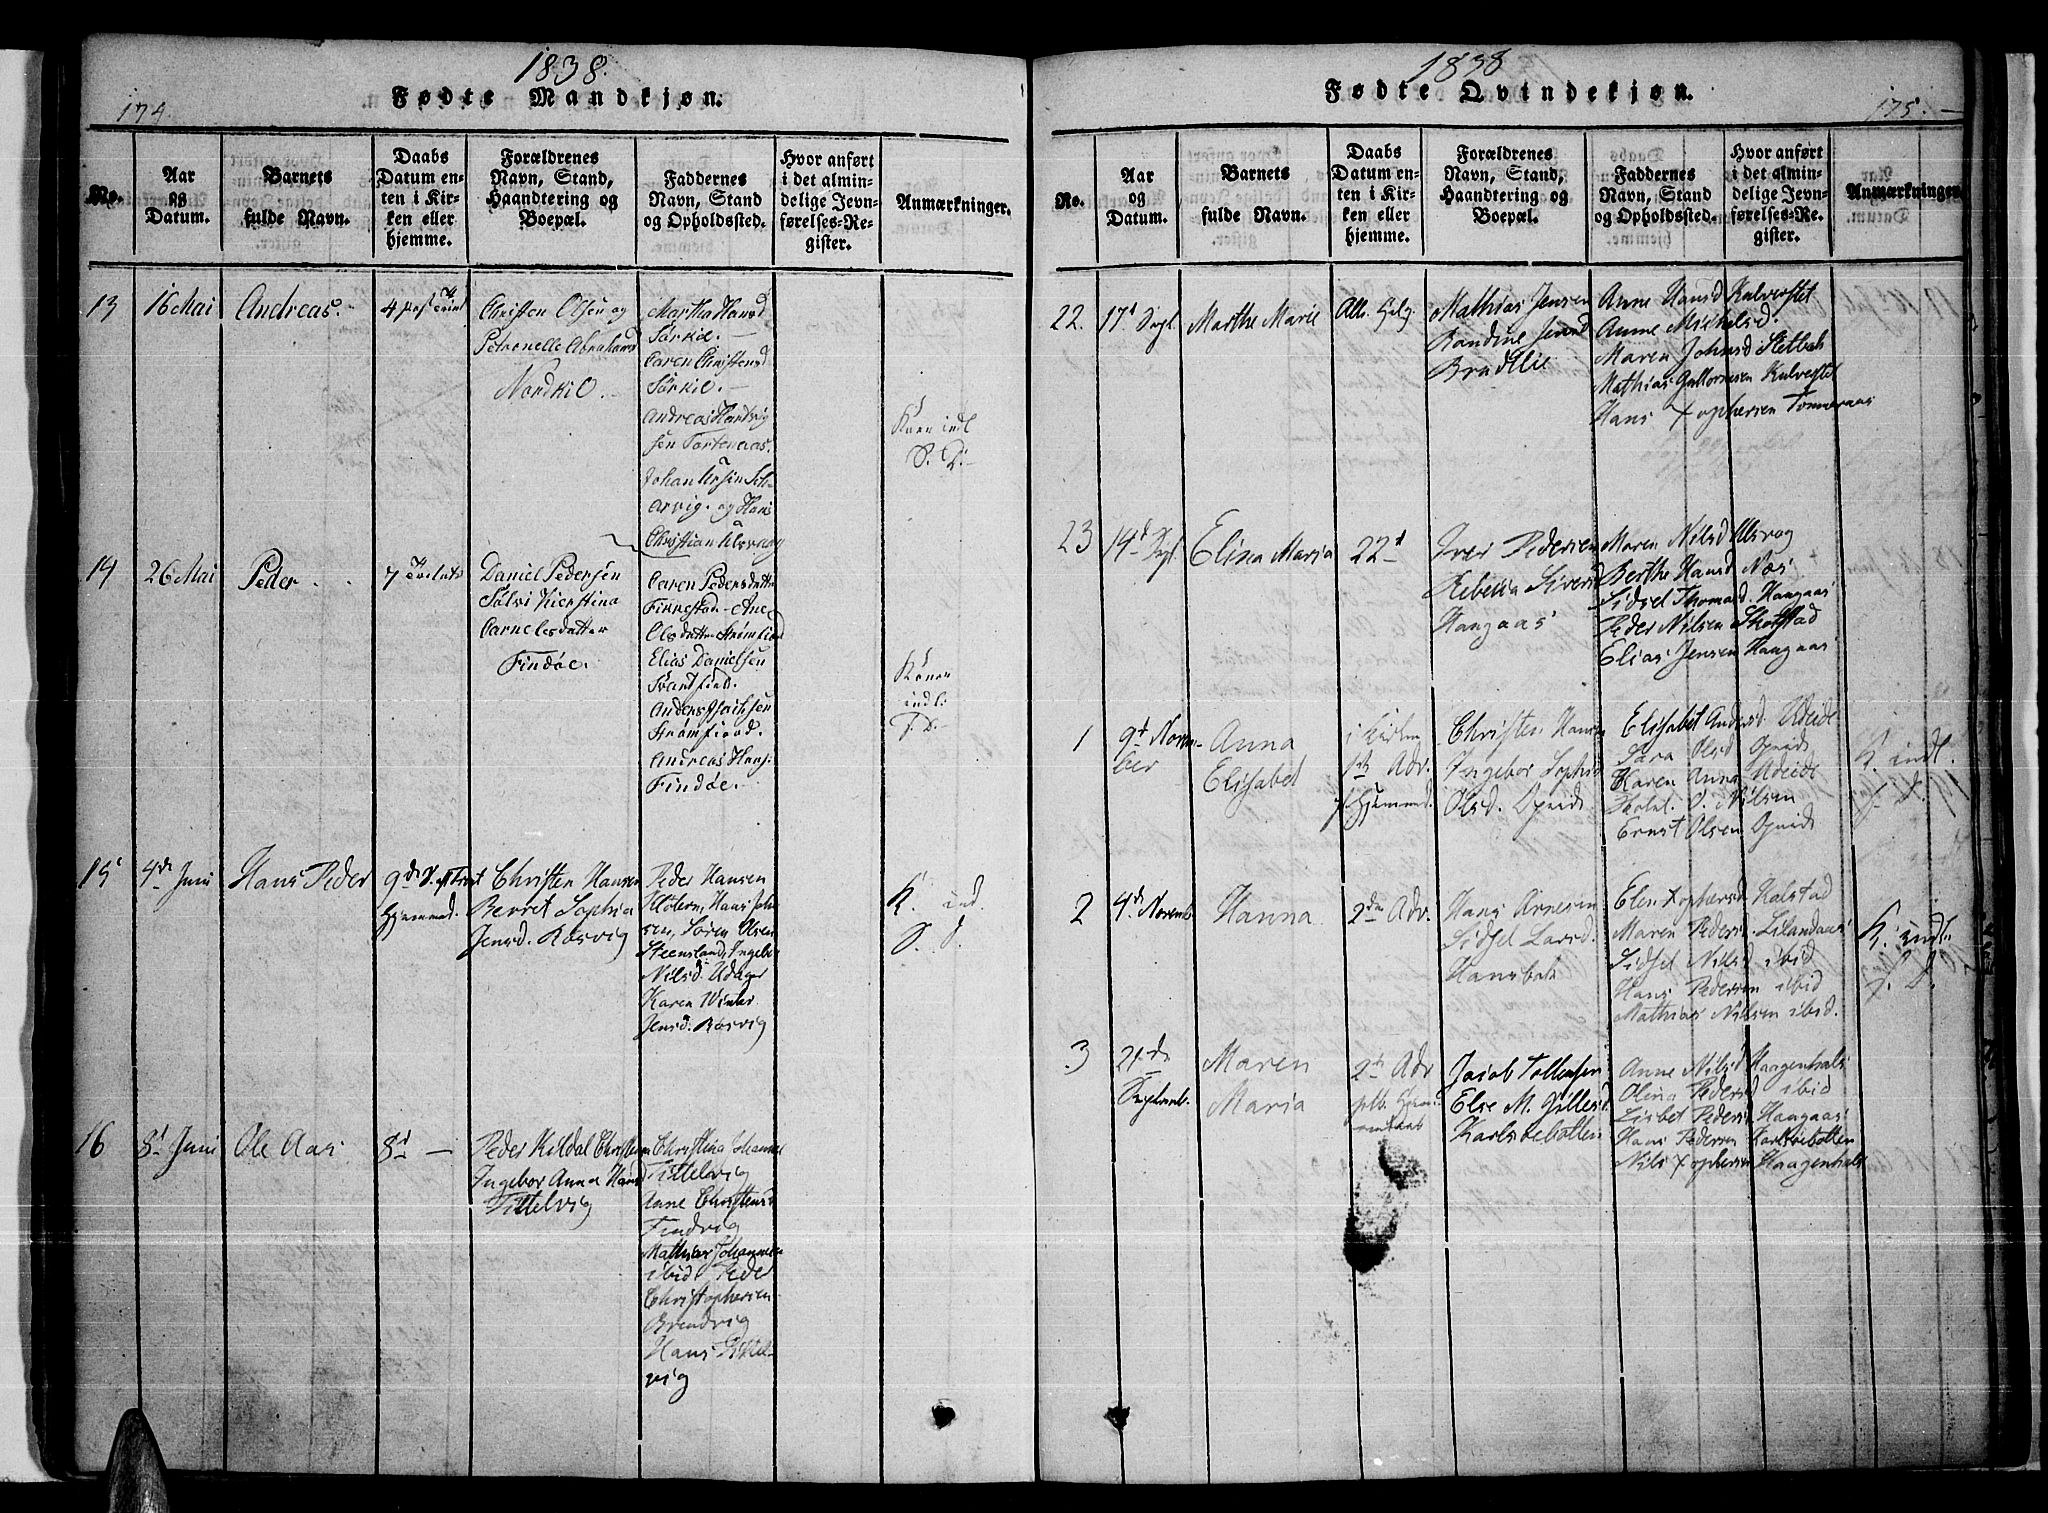 1838.
Fødte Mandkjøn.
174.
No.
Aar
og
Datum.
Barnets
fulde Navn.
Daabs
Datum en-
ten i Kir-
ken eller
hjemme.
Forældrenes
Navn, Stand,
Haandtering og
Boepæl.
Faddernes
Navn, Stand
og Opholdssted.
Hvor anført
i det almin-
delige Jevn-
førelses-Re-
gister.
Anmærkninger.
13
16 Mai
Andreas.
4 post Trinit
Christen Olsen og
Petronelle Abrahamsd
Nordkil.
Martha Hansd
Sørkil.
Caren Christensd
Sørkil.
Andreas Hartvig
sen Tortenaas.
Johan
arvig. og Hans
Christian Ulsvaag
Konen indl
S. D.
14
26 Mai
Peder
7 Trinit
Daniel Pedersen
Sølvi Kierstina
Carnelsdatter
Findøe.
Caren Pedersdatter
Finnestad. Ane
Elsdatter Strømfiord
Elias Danielsen
Svartfield.
Anders Isachsen
Strømfiord.
Andreas Hans:
Findøe.
Konen
indl:
S. D.
15
4de Juni
Hans Peder
9de S. p. Trinit
Hjemmed.
Christen Hansen
Berret Sophia
Jensd. Røsvig
Peder Hansen
Holern, Hans Joh
sen, Søren Olsen
Steensland, Ingebor
Nilsd. Udager
Karen Wimke
Jensd. Røsvig
K. ind.
S. D.
16
8d Juni
Ole Aas
8d —
Peder Kildal Christensen
Ingebor Anna Hansd
Tittelvig
Christina Johannesd
Tittelvig
Anne Christensd
Findvig
Mathias Johannesen
ibid Peder
Christophersen
Brendvig
Hans Tittel-
vig
1838
Fødte Qvindekjøn.
175.
No.
Aar
og
Datum.
Barnets
fulde Navn.
Daabs
Datum en-
ten i Kir-
ken eller
hjemme.
Forældrenes
Navn, Stand,
Haandtering og
Boepæl.
Faddernes
Navn, Stand
og Opholdssted.
Hvor anført
i det almin-
delige Jevn-
førelses-Re-
gister.
Anmærkninger
22.
17d Sept.
Marthe Marie
Alle Helg.
Mathias Jensen
Randine Jensd
Bradlie
Anne Hansd Kalverstet
Anne Michelsd.
Maren Johnsd Slettebak
Mathias Kalverstet
Hans Xophersen Tømmeraas
23
14d Sept
Elina Maria
22d
Iver Pedersen
Rebecka Siversd
Haagaas
Maren Nilsd Ulsvog
Berthe Hansd Næs
Sidsel Thomasd. Haagaas
Peder Nilsen Skotstad
Elias Jensen Haagaas
1
9d Novem-
ber
Anna
Elisabet
i Kirken
1ste Adv.
f. Hjemmed.
Christen Hansen
Ingebor Sophie
Olsd. Opeid
Elisabet Andersd. Udeide
Sara Olsd Opeid
Karen Anna Udeide
Nilsen
Ernst Olsen Opeid
K. indl.
S. D.
2
4d. Novemb.
Hanna
2den Adv.
Hans Arnesen
Sidsel Larsd.
Hansbak
Elen Xophersd Kalstad
Maren Pedersd. Lilandaas
Sidsel Nilsd ibid
Hans Pedersen ibid
Mathias Nilsen ibid.
K. indl:
S. D.
3
21de
Septemb.
Maren
Maria
2d Adv
Jacob Tollefsen
Else M. Jillesd.
Karlsøebotten
Anne Nilsd Haagenhals
Olina Pedersd ibid
Lisbet Pedersd. Haagaas
Hans Pedersen Karlsøebotten
Nils Xophersen Haagenhals